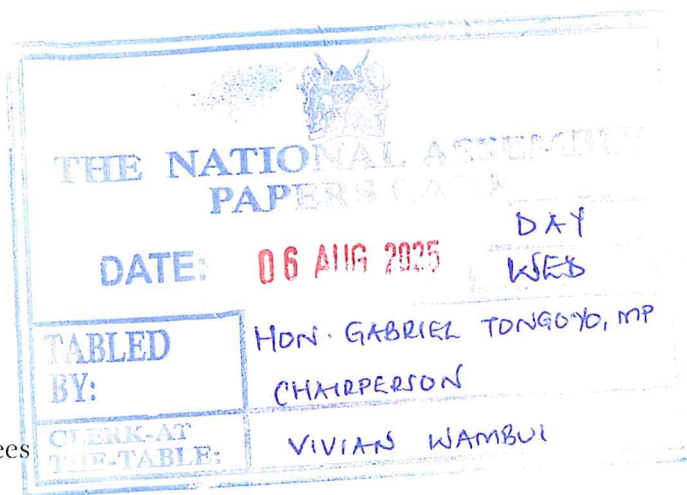 THE NATIONAL ASSEMBLY
PAPERS LAID
DATE: 06 AUG 2025
DAY
WED
TABLED
BY:
HON. GABRIEL TONGOYO, MP
CHAIRPERSON
CLERK-AT
THE-TABLE:
VIVIAN WAMBUI
ees